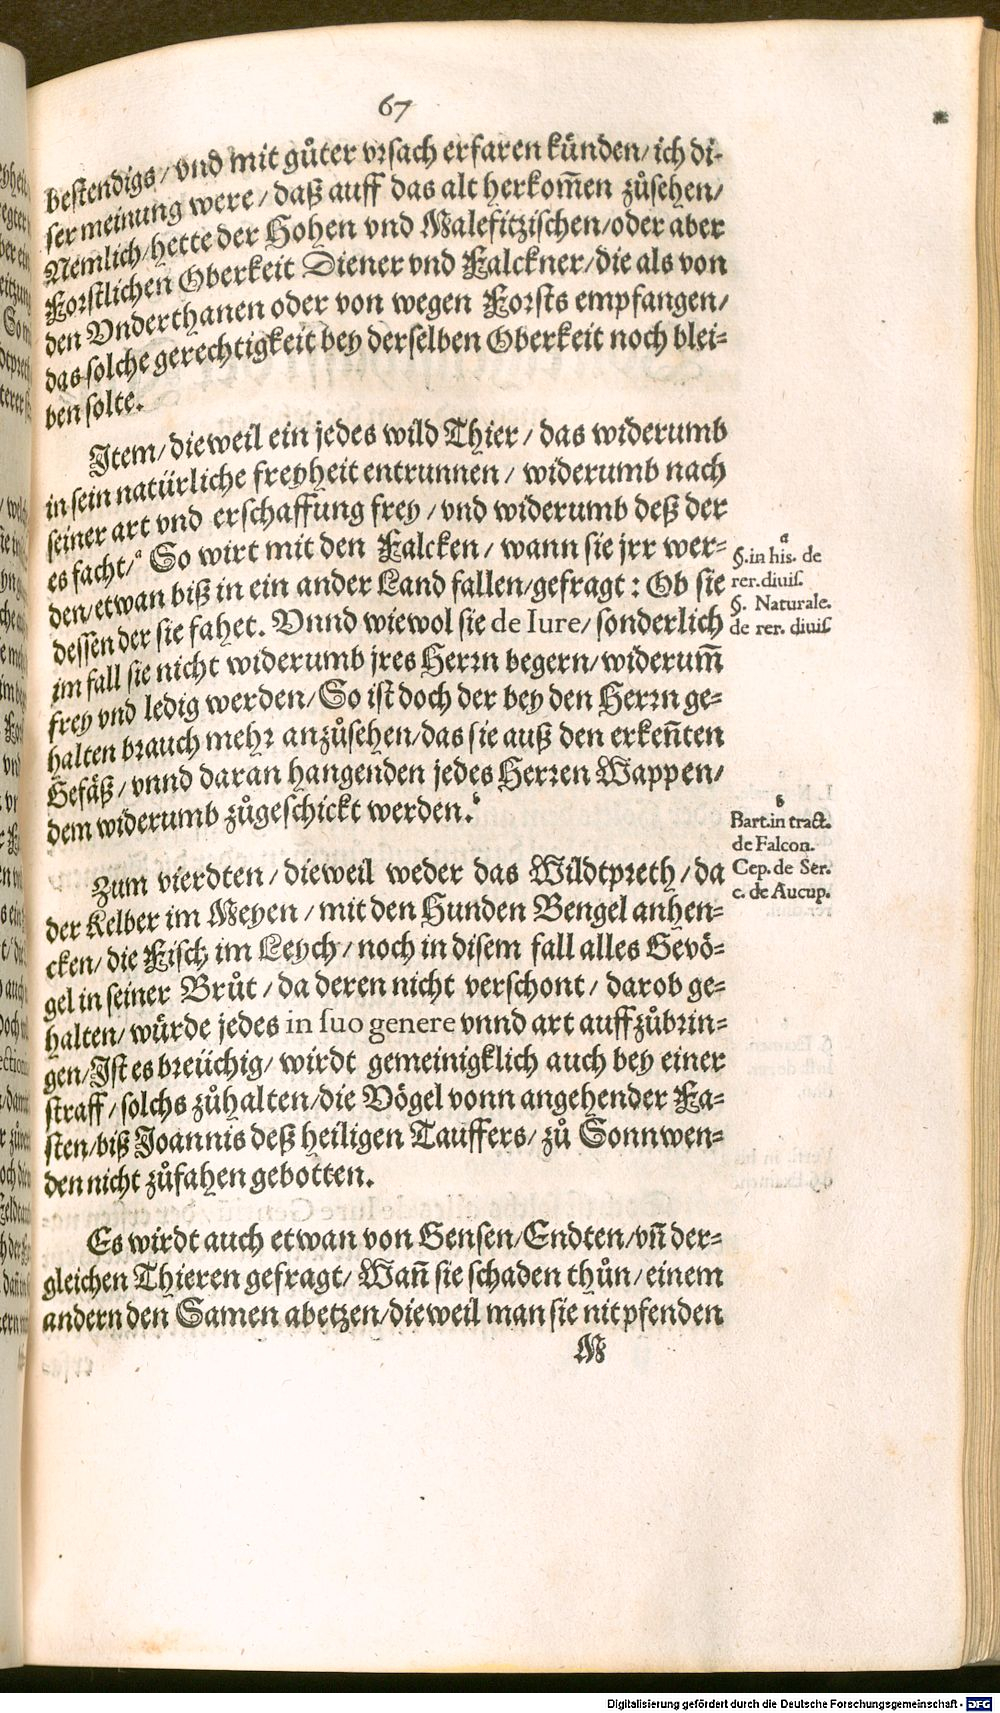 67
bestendigs/ vnd mit gůter vrsach erfaren künden/ ich di-
ser meinung were/ daß auff das alt herkom̃en zůsehen/
Nemlich/ hette der Hohen vnd Malefitzischen/ oder aber
Forstlichen Oberkeit Diener vnd Falckner/ die als von
den Vnderthanen oder von wegen Forsts empfangen/
das solche gerechtigkeit bey derselben Oberkeit noch blei-
ben solte.
Jtem/ dieweil ein jedes wild Thier/ das widerumb
in sein natürliche freyheit entrunnen/ widerumb nach
seiner art vnd erschaffung frey/ vnd widerumb deß der
es facht/ᵃ So wirt mit den Falcken/ wann sie jrr wer-
den/ etwan biß in ein ander Land fallen/ gefragt: Ob sie
dessen der sie fahet. Vnnd wiewol sie de Iure/ sonderlich
im fall sie nicht widerumb jres Herrn begern/ widerum̃
frey vnd ledig werden/ So ist doch der bey den Herrn ge-
halten brauch mehr anzůsehen/ das sie auß den erkeñten
Gefäß/ vnnd daran hangenden jedes Herren Wappen/
dem widerumb zůgeschickt werden.ᵇ
a
§. in his. de
rer. diuiſ.
§. Naturale.
de rer. diuiſ.
b
Bart. in tract.
de Falcon.
Cep. de Ser.
c. de Aucup.
Zum vierdten/ dieweil weder das Wildtpreth/ da
der Kelber im Meyen/ mit den Hunden Bengel anhen-
cken/ die Fisch im Leych/ noch in disem fall alles Gevö-
gel in seiner Brůt/ da deren nicht verschont/ darob ge-
halten/ würde jedes in ſuo genere vnnd art auffzůbrin-
gen/ Ist es breüchig/ wirdt gemeinigklich auch bey einer
straff/ solchs zůhalten/ die Vögel vonn angehender Fa-
sten/ biß Joannis deß heiligen Tauffers/ zů Sonnwen-
den nicht zůfahen gebotten.
Es wirdt auch etwan von Gensen/ Endten/ vñ der-
gleichen Thieren gefragt/ Wañ sie schaden thůn/ einem
andern den Samen abetzen/ dieweil man sie nit pfenden
M
Digitalisierung gefördert durch die Deutsche Forschungsgemeinschaft - DFG